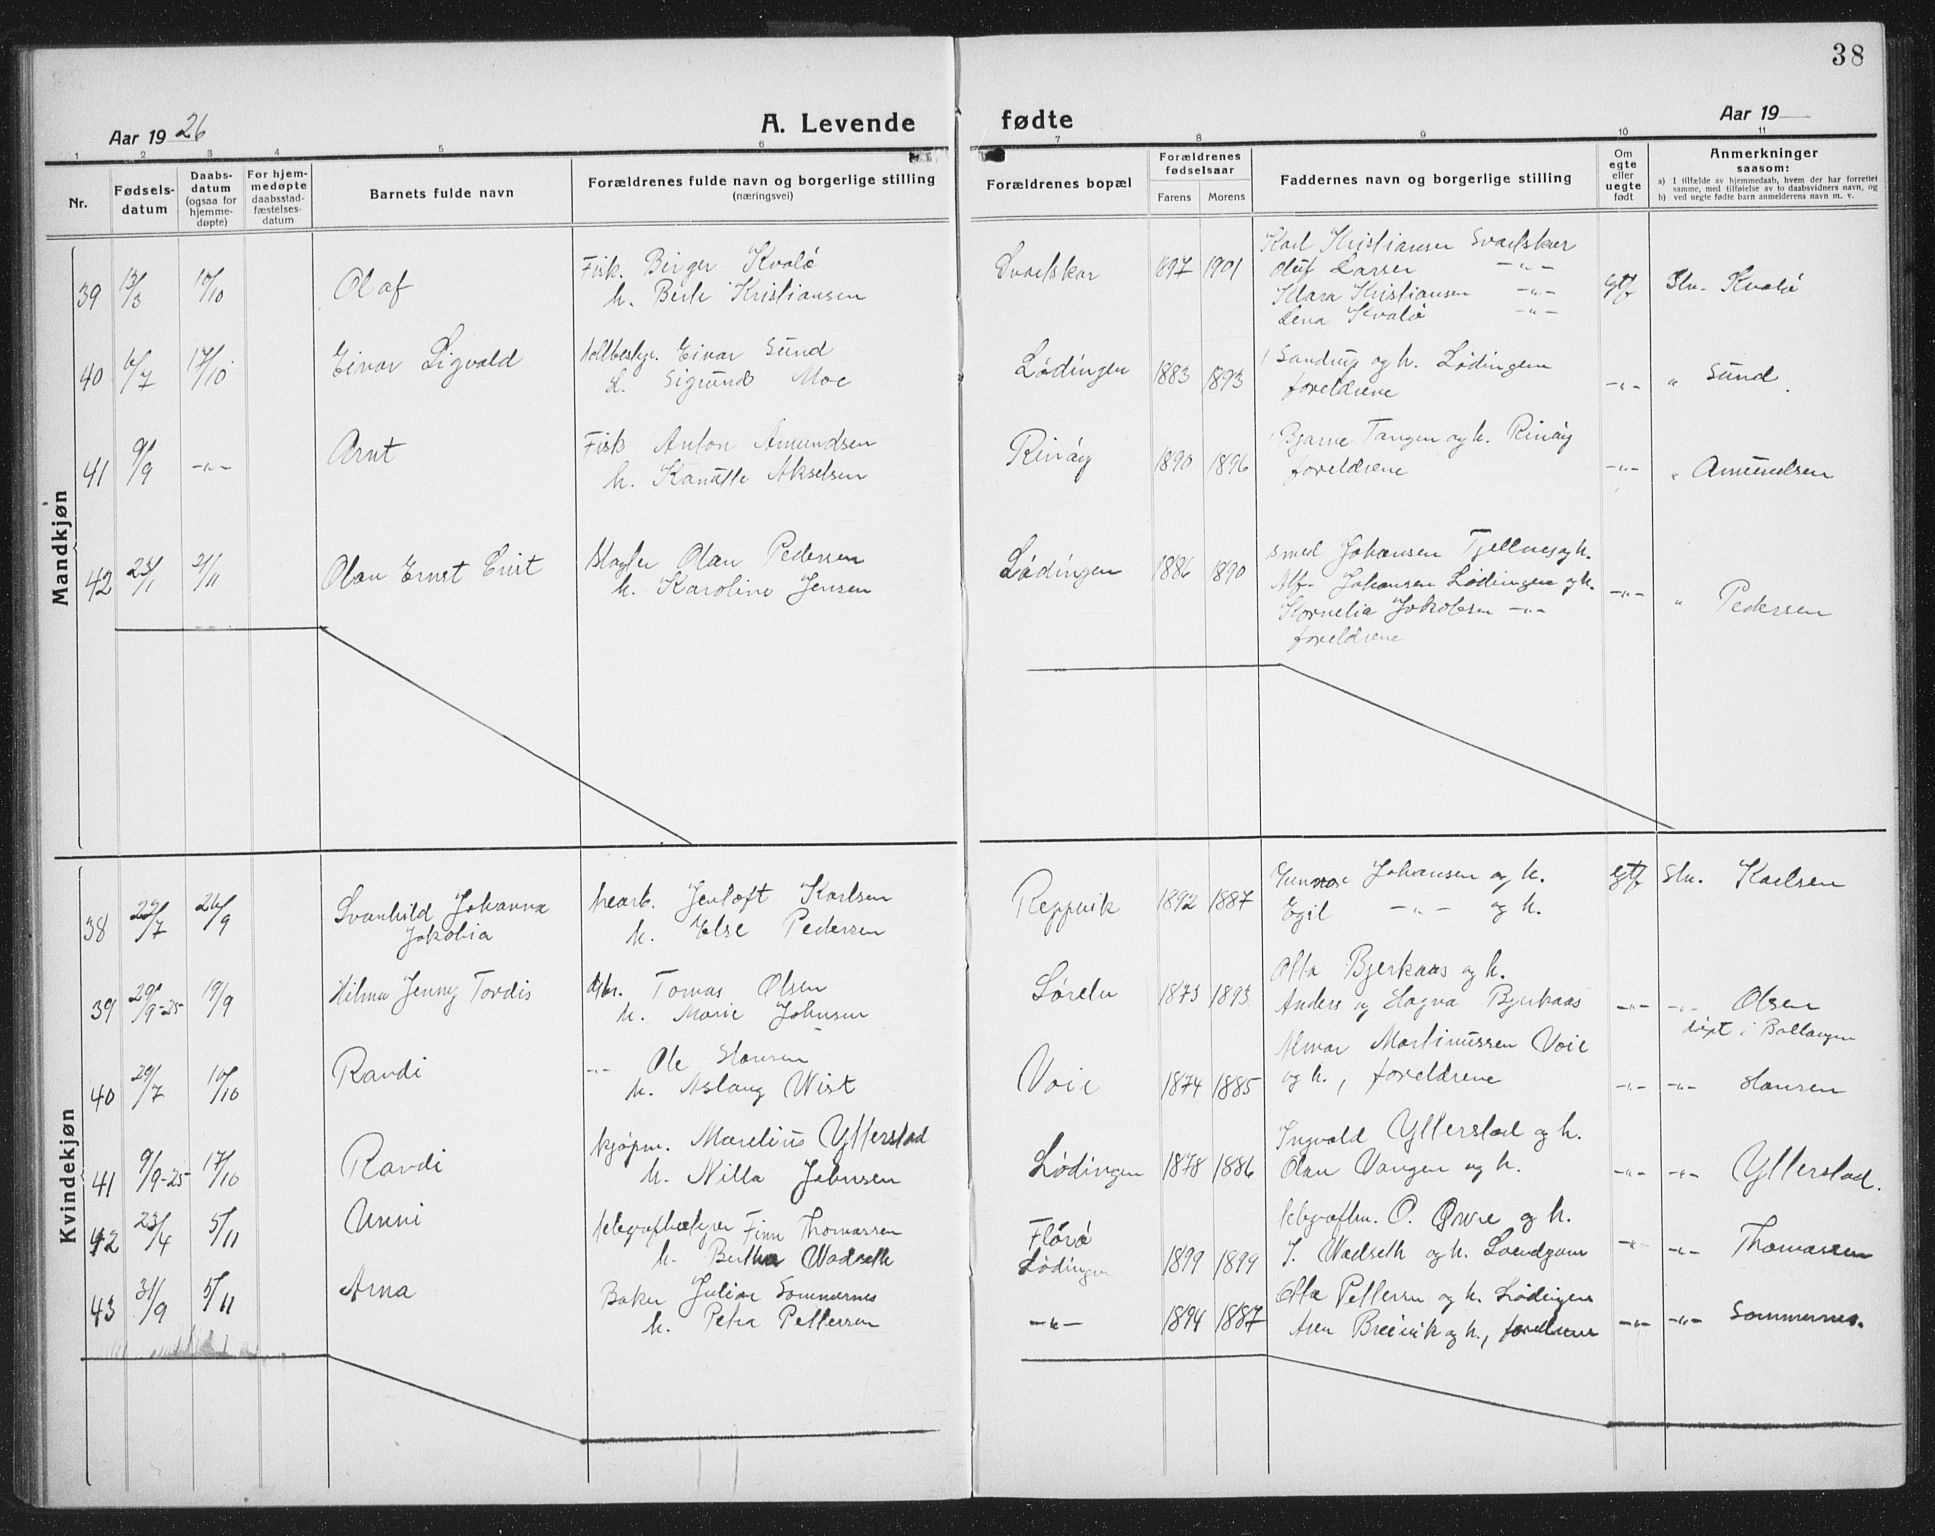 38
Aar 1926
A. Levende
fødte
Aar 19
1 2 3 4 5 6 7 8 9 10 11
Nr.
Fødsels-
datum
Daabs-
datum
(ogsaa for
hjemme-
døpte)
For hjem-
medøpte
daabsstad-
fæstelses-
datum
Barnets fulde navn
Forældrenes fulde navn og borgerlige stilling
(næringsvei)
Forældrenes bopæl
Forældrenes
fødselsaar
Farens Morens
Faddernes navn og borgerlige stilling
Om
egte
eller
uegte
født
Anmerkninger
saasom:
a) I tilfælde av hjemmedaab, hvem der har forrettet
samme, med tilføielse av to daabsvidners navn, og
b) ved uegte fødte barn anmelderens navn m. v.
Mandkjøn
39 13/3 10/10 Olaf
Fisk. Birger Kvalø
h. Berle Kristiansen
1897 1901
Karl Kristiansen
Oluf Larsen -"-
Klara Kristiansen -"-
Lena Kvalø -"-
Kvalø
40 6/7 17/10 Einar Sigvald
Einar Sund
h. Sigrund Moe
Lødingen 1883 1893
Sandrup og h. Lødingen
foreldrene
-"- " Sund
41 9/9 -"- Arnt
Fisk Anton Amundsen
h. Akselsen
Rinøy 1890 1896
Bjarne Tangen og h. Rinøy
foreldrene
-"- " Amundsen
42 23/1 21/11 Olan Ernst
Olan Pedersen
h. Karoline Jensen
Lødingen 1886 1890
smed Johansen Tjellnes og h.
Johansen Lødingen og h.
Kornelia Jakobsen -"-
foreldrene
-"- " Pedersen
Kvindekjøn
38 22/7 26/9 Svanhild Johanna
Jakobia
Karlsen
h. Else Pedersen
Reppvik 1892 1887
Gunnar Johansen og h.
Egil -"- og h.
Karlsen
39 29/9-25 19/9 Hilma Jenny Tordis
Tomas Olsen
h. Marie Johnsen
1873 1893
Otto Bjerkaas og h.
Anders og Hagna Bjerkaas
-"- -"- Olsen
døpt i Ballangen
40 29/7 10/10 Randi
-"- Ole Hansen
h. Aslaug Wist
Voie 1874 1885
Martinussen Voie
og h., foreldrene
-"- -"- Hansen
41 9/9-25 17/10 Randi
kjøpm. Marelius Ytterstad
h. Nilla Johnsen
Lødingen 1878 1886
Ingvald Ytterstad og h.
Olan Vangen og h.
-"- -"- Ytterstad.
42 23/4 5/11 Unni
Finn Thomassen
h. Bertha Wadseth
Florø
Lødingen
1899 1899
O. Øvre og h.
J. Wadseth og h.
-"- -"- Thomassen
43 31/9 5/11 Arna
Baker Julian Sommernes
h. Petra Pettersen
-"- 1894 1887
Otto Pettersen og h. Lødingen
Breivik og h., foreldrene
-"- -"- Sommernes.